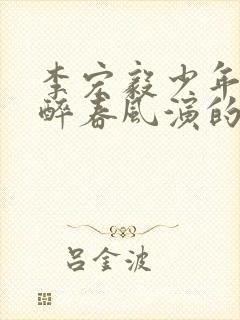 李宏毅少年
醉春风演的
吕金波